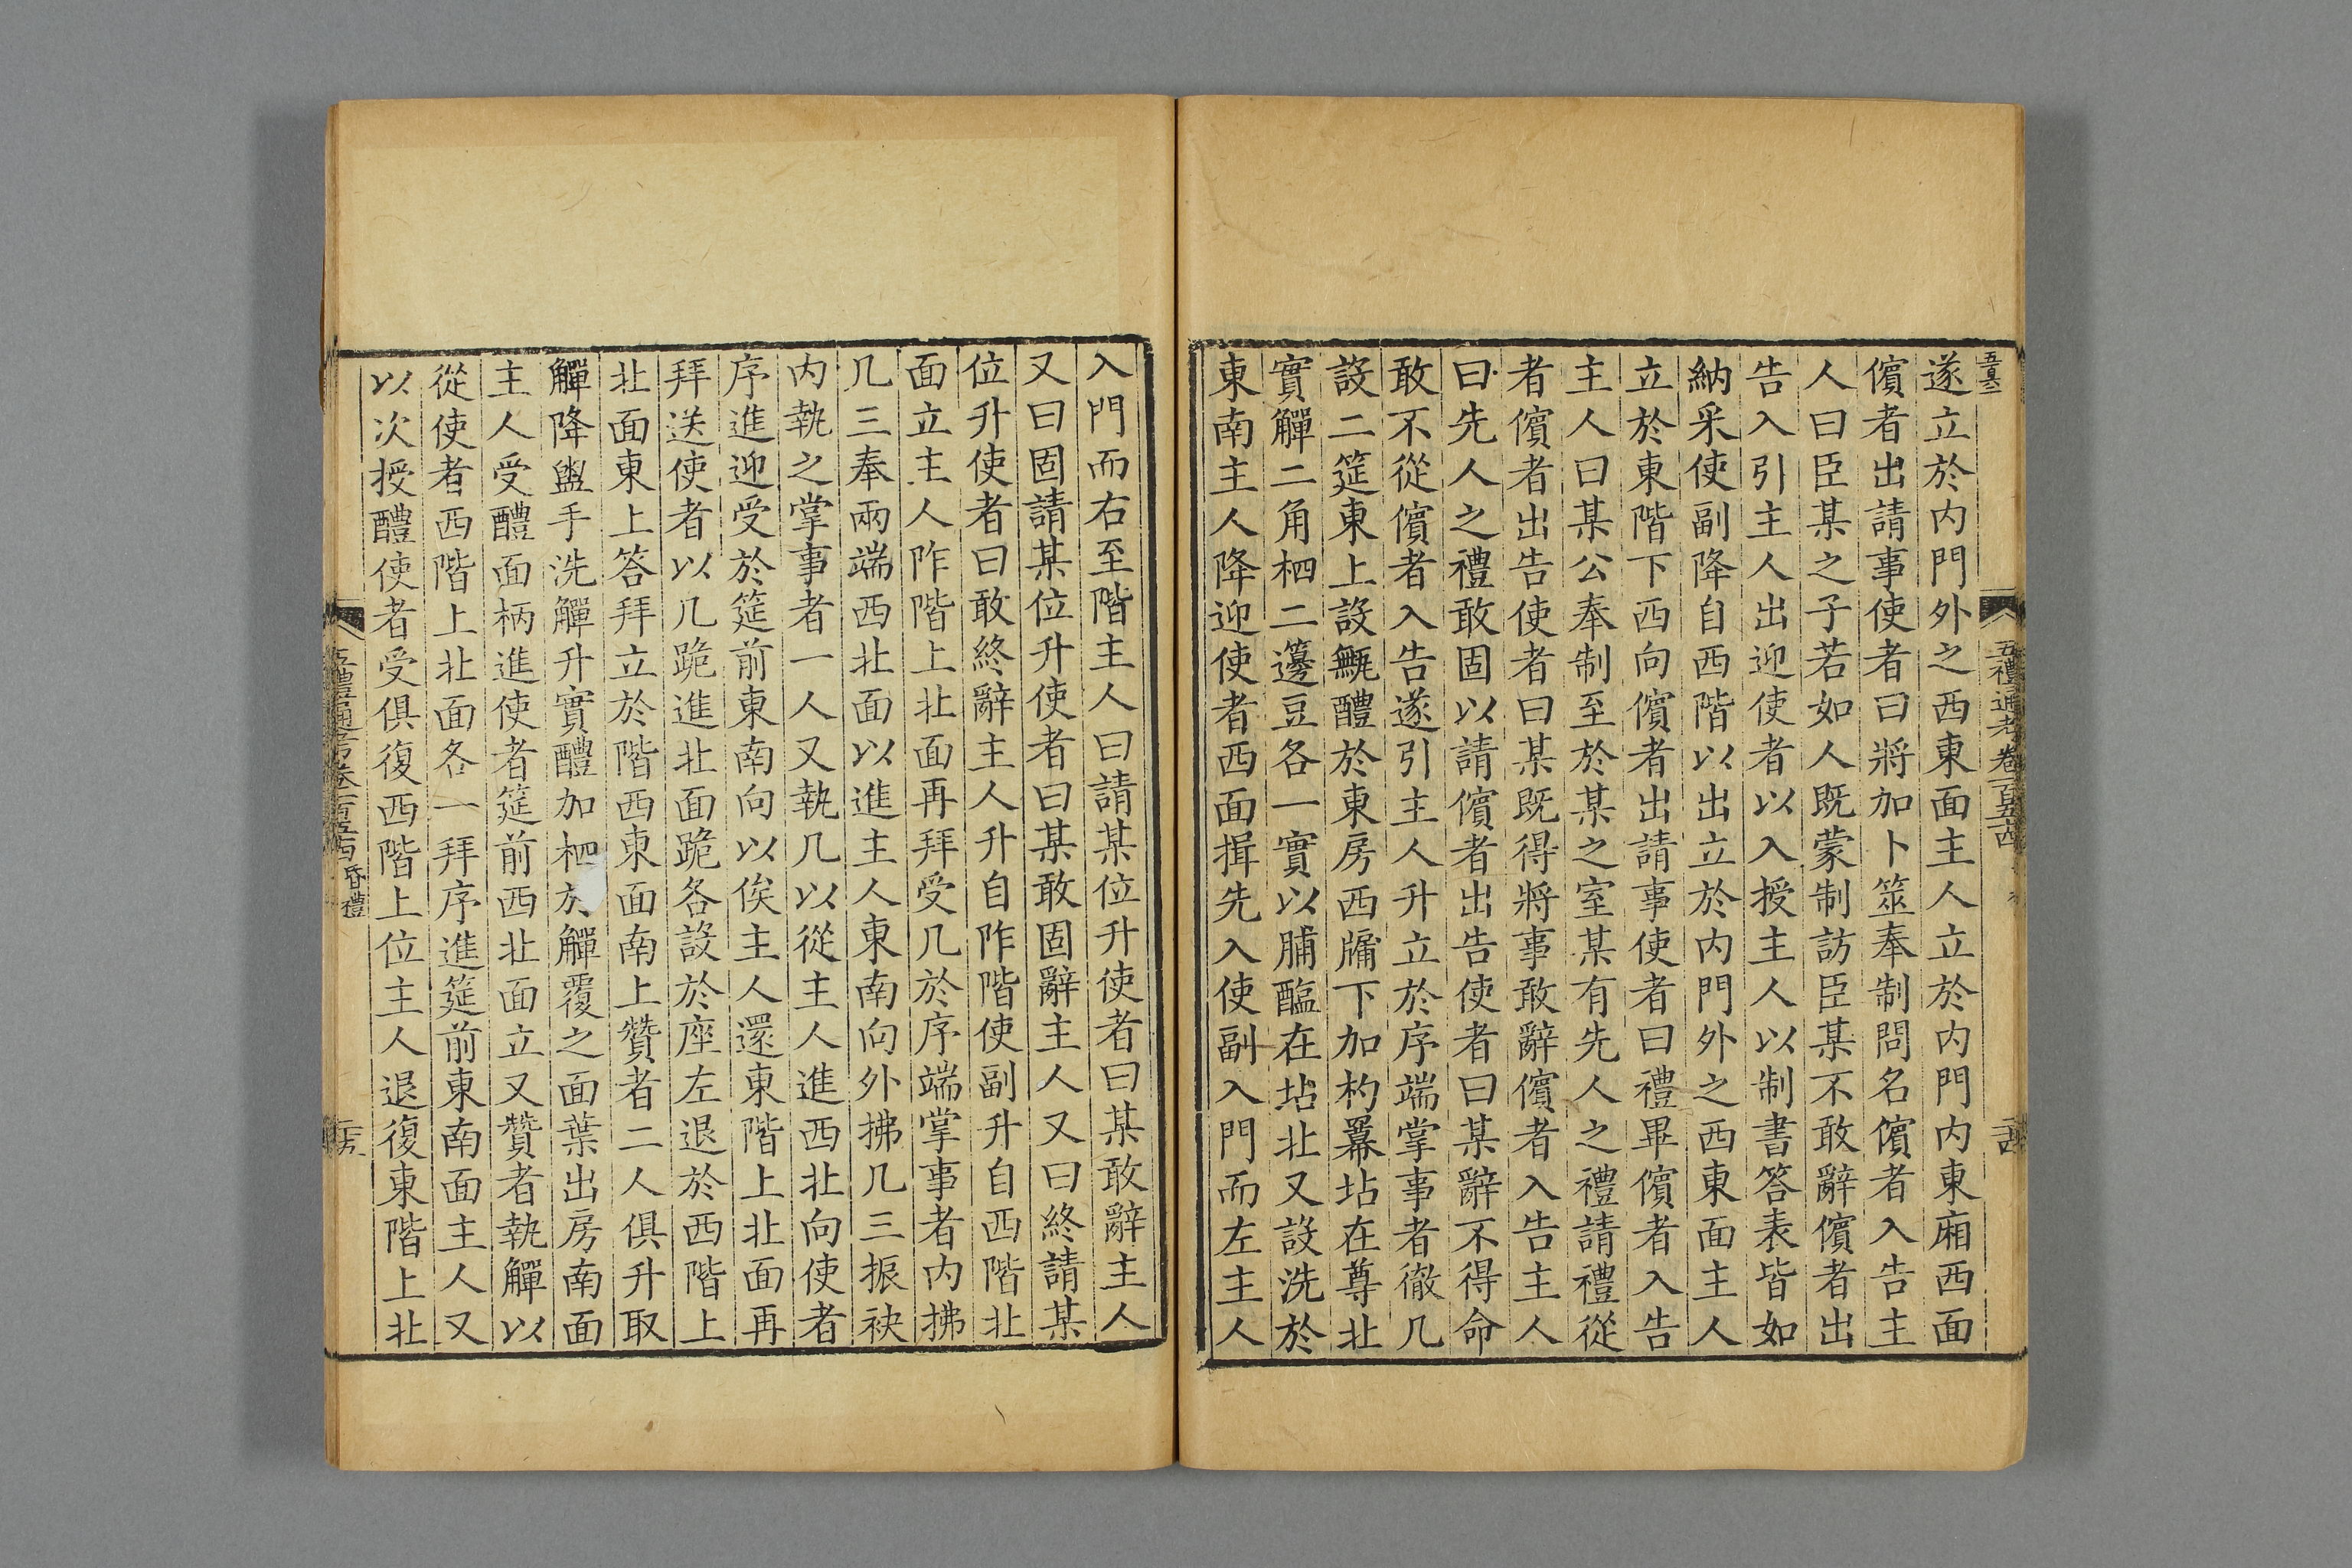 遂立於内門外之西東面主人立於内門内東廂西面
儐者出請事使者曰將加卜筮奉制問名儐者入告主
人曰臣某之子若如人既蒙制訪臣某不敢辭儐者出
告入引主人出迎使者以入授主人以制書答表皆如
納采使副降自西階以出立於内門外之西東面主人
立於東階下西向儐者出請事使者曰禮畢儐者入告
主人曰某公奉制至於某之室某有先人之禮請禮從
者儐者出告使者曰某既得將事敢辭儐者入告主人
曰先人之禮敢固以請儐者出告使者曰某辭不得命
敢不從儐者入告遂引主人升立於序端掌事者徹几
設二筵東上設甒醴於東房西牖下加杓羃坫在尊北
實觶二角柶二籩豆各一實以脯醢在坫北又設洗於
東南主人降迎使者西面揖先入使副入門而左主人
五禮通考卷一百五十四
入門而右至階主人曰請某位升使者曰某敢辭主人
又曰固請某位升使者曰某敢固辭主人又曰終請某
位升使者曰敢終辭主人升自阼階使副升自西階北
面立主人阼階上北面再拜受几於序端掌事者内拂
几三奉兩端西北面以進主人東南向外拂几三振袂
内執之掌事者一人又執几以從主人進西北向使者
序進迎受於筵前東南向以俟主人還東階上北面再
拜送使者以几跪進北面跪各設於座左退於西階上
北面東上答拜立於階西東面南上贊者二人俱升取
觶降盥手洗觶升實醴加柶於觶覆之面葉出房南面
主人受醴面柄進使者筵前西北面立又贊者執觶以
從使者西階上北面各一拜序進筵前東南面主人又
以次授醴使者受俱復西階上位主人退復東階上北
昏禮